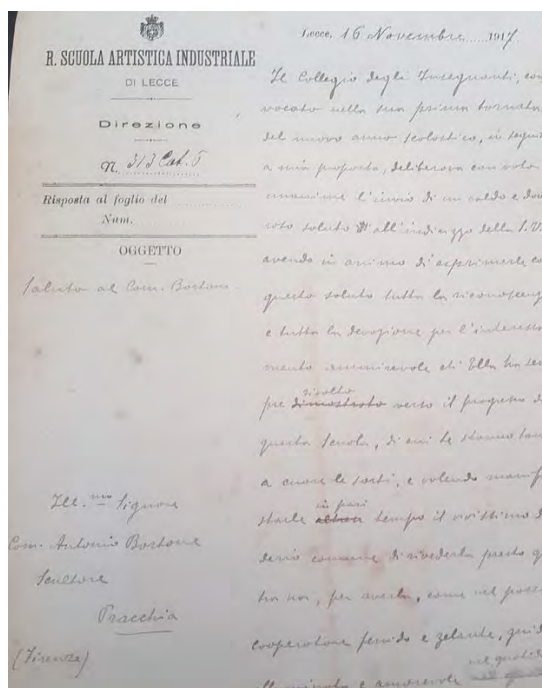 R. SCUOLA ARTISTICA INDUSTRIALE
DI LECCE
Direzione
N. 313 Cat. 5
Risposta al foglio del
Num.
OGGETTO
Saluto al Com. Bortone
Ill.mo Signore
Com. Antonio Bortone
Scultore
Pracchia
(Firenze)
Lecce, 16 Novembre 1917
Il Collegio degli Insegnanti, con
vocato nella sua prima tornata
del nuovo anno scolastico, in segui
a mia proposta, deliberava con voto
unanime l'invio di un caldo e dov
roso saluto all'indirizzo della S.V.
avendo in animo di esprimerle co
questo saluto tutta la riconoscenz
e tutta la devozione per l'interessa
mento ammirevole ch'Ella ha sem
rivolto
pre dimostrato verso il progresso d
questa Scuola, di cui le stanno tan
a cuore le sorti, e volendo manife
in pari
starle tempo il vivissimo d
derio comune di rivederla presto q
tra noi, per averla, come nel passa
cooperatore fervido e zelante, guid
e amorevole